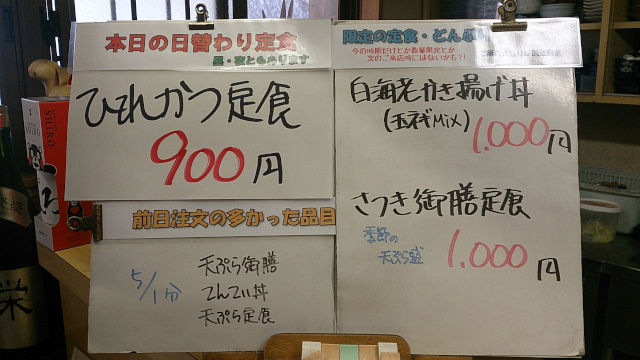 本日の日替わり定食
昼・夜ともあります
ひれかつ定食
900円
前日注文の多かった品目
5/1分
天ぷら御膳
てんてい丼
天ぷら定食
限定の定食・どんぶり
今の時期だけとか数量限定とか
次のご来店時にはないかも?!
白海老かき揚げ丼
(玉ネギMix)
1,000円
さつき御膳定食
季節の
天ぷら盛
1,000円
SHIRO
栄